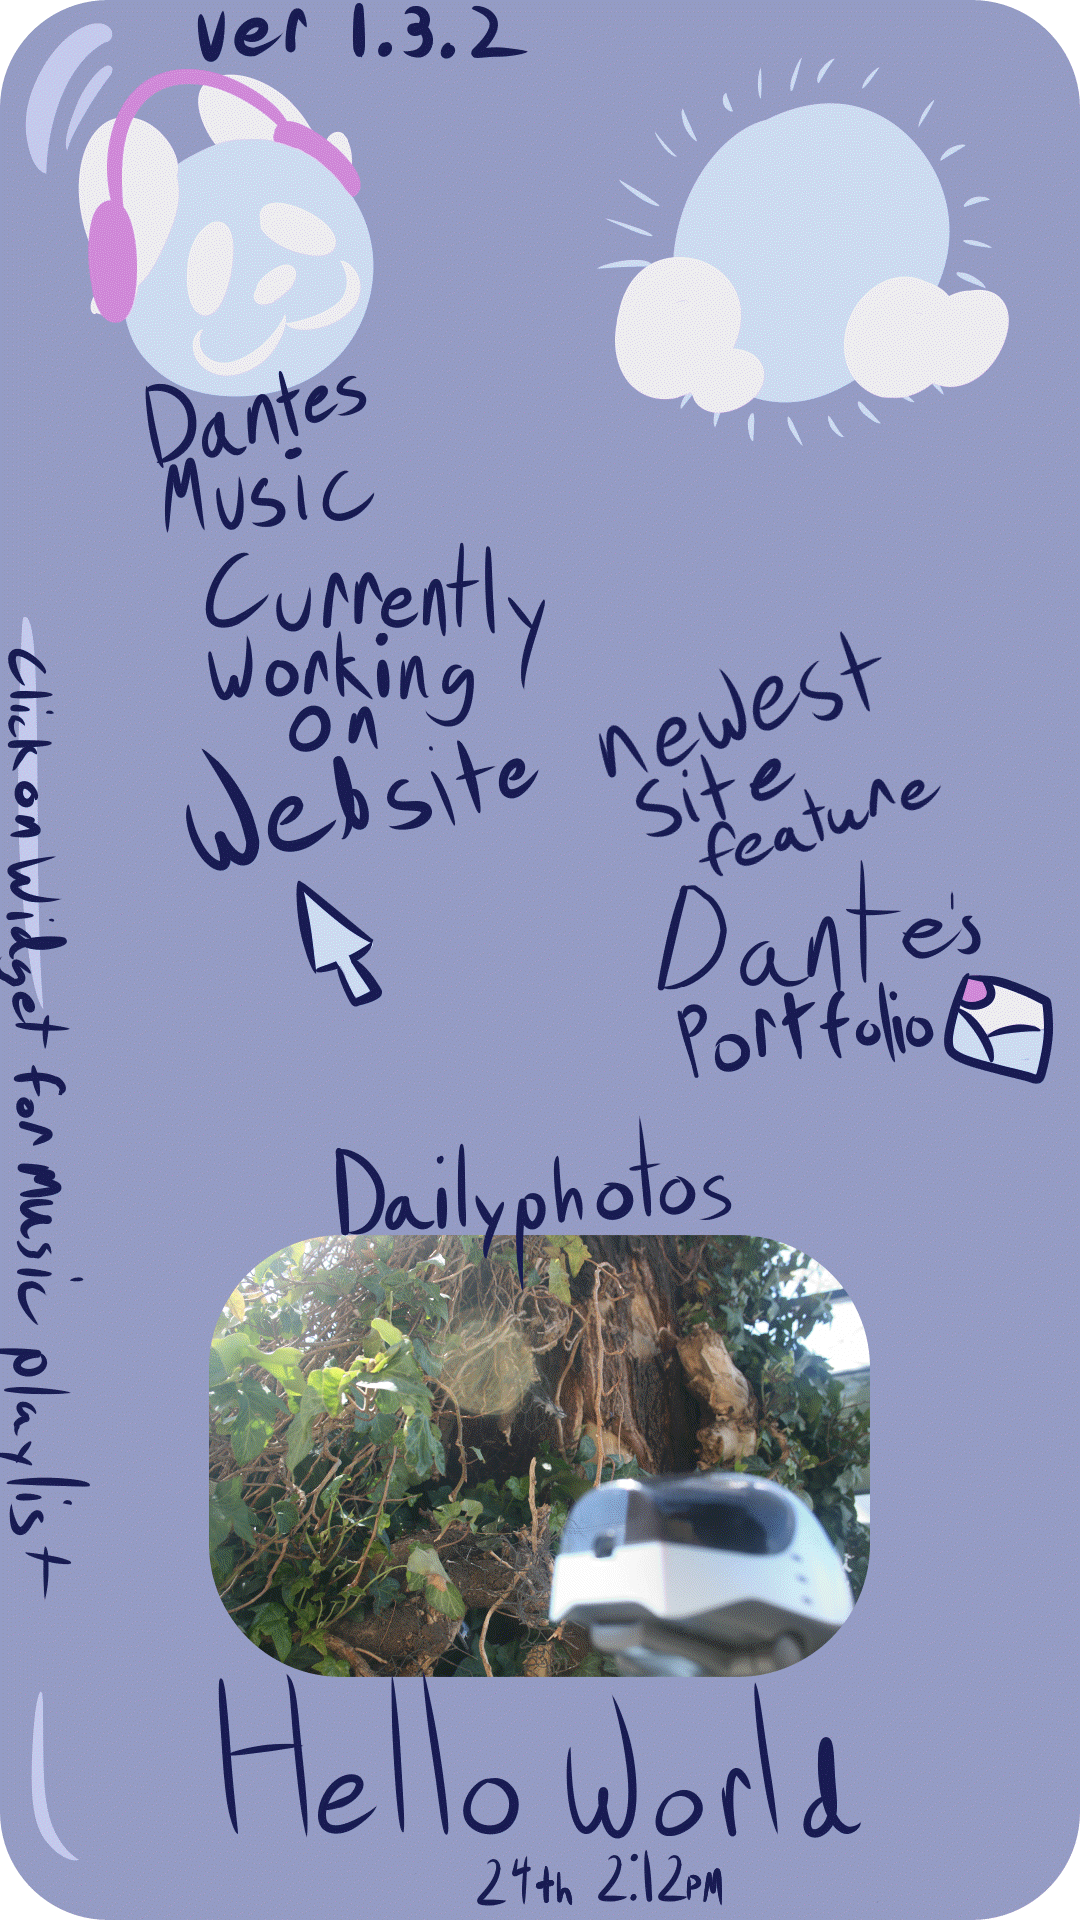 ver 1.3.2
Dantes
Music
Currently
working
on
Website
newest
site
feature
Dante's
Portfolio
Click on Widget for Music playlist
Dailyphotos
Hello World
24th 2:12PM